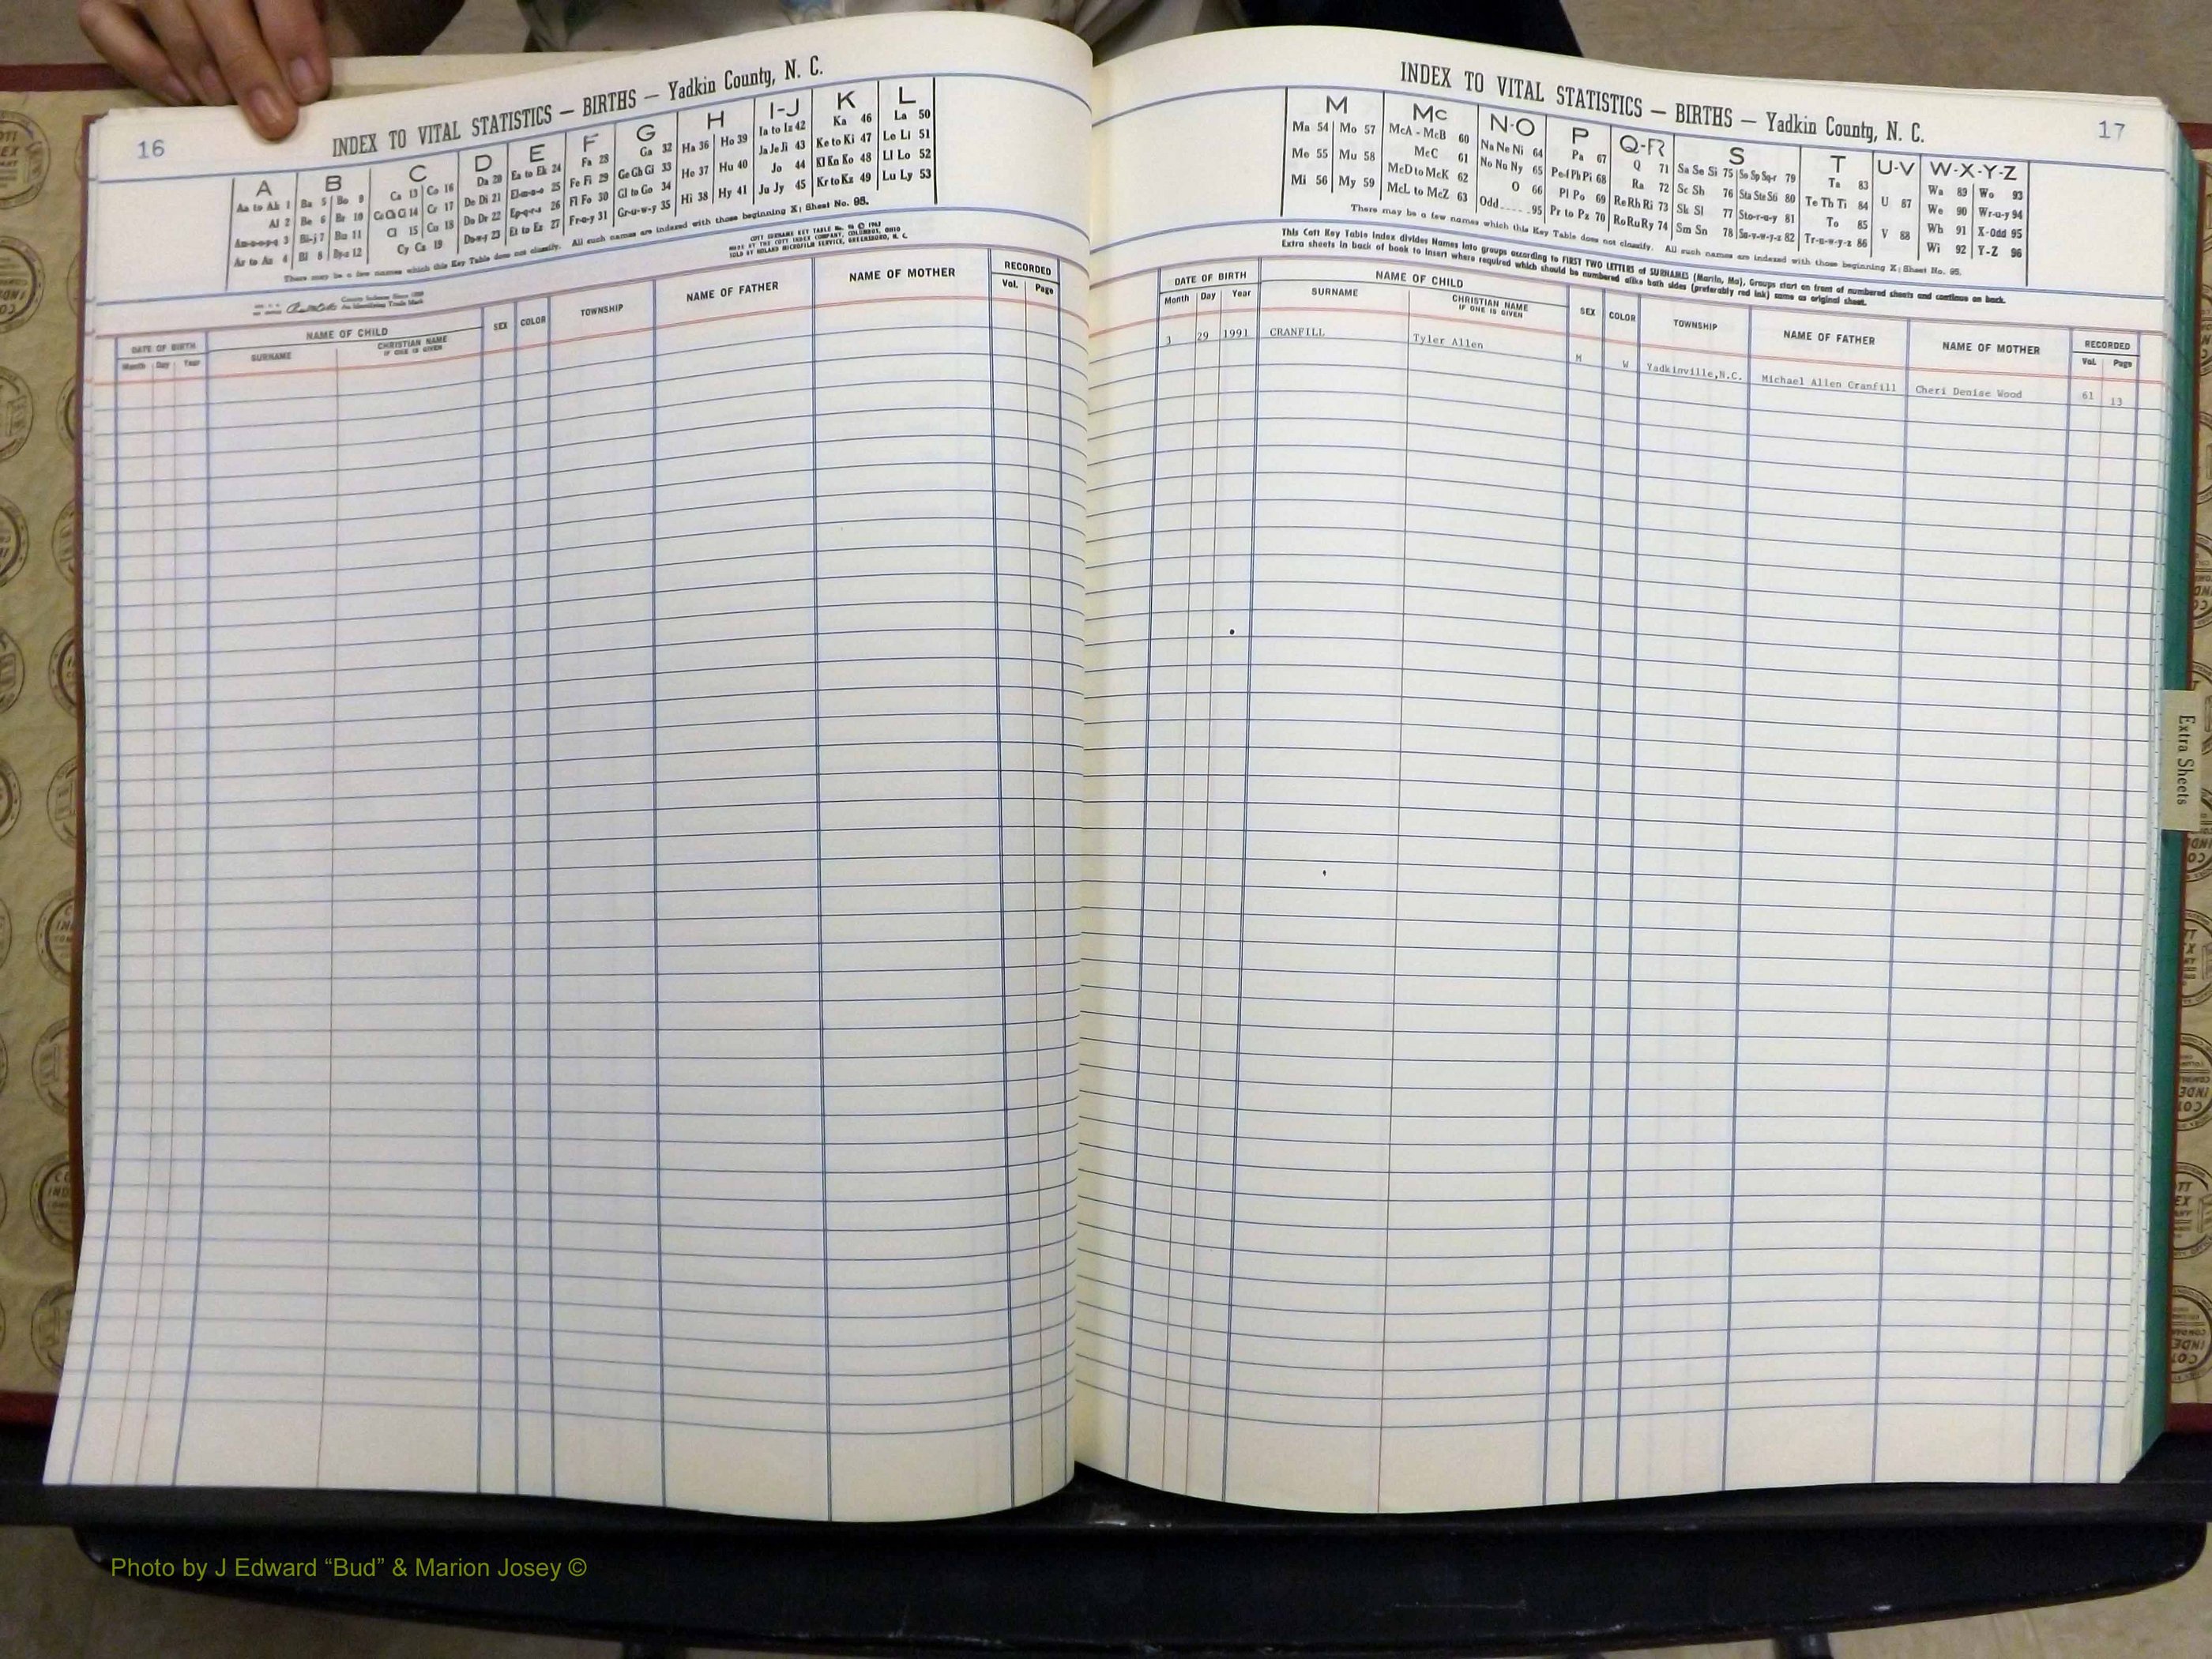 16
INDEX TO VITAL STATISTICS — BIRTHS — Yadkin County, N. C.
A B C D E F G H I-J K L
Aa to Ak 1 Ba 5 Bo 9 Ca 13 Co 16 Da 20 Ea to Ek 24 Fa 28 Ga 32 Ha 36 Ho 39 Ia to Iz 42 Ka 46 La 50
Al 2 Be 6 Br 10 Ce Ch Ci 14 Cr 17 De Di 21 El-m-n-o 25 Fe Fi 29 Ge Gh Gi 33 He 37 Hu 40 Ja Je Ji 43 Ke to Ki 47 Le Li 51
Am-n-o-p-q 3 Bi-j 7 Bu 11 Cl 15 Cu 18 Do Dr 22 Ep-q-r-s 26 Fl Fo 30 Gl to Go 34 Hi 38 Hy 41 Jo 44 Kl Kn Ko 48 Ll Lo 52
Ar to Az 4 Bl 8 By-z 12 Cy Cz 19 Du-w-y 23 Et to Ez 27 Fr-u-y 31 Gr-u-w-y 35 Ju Jy 45 Kr to Kz 49 Lu Ly 53
There may be a few names which this Key Table does not classify. All such names are indexed with those beginning X; Sheet No. 95.
MADE BY THE COTT INDEX COMPANY, COLUMBUS, OHIO
SOLD BY HOLAND MICROFILM SERVICE, GREENSBORO, N. C.
DATE OF BIRTH NAME OF CHILD SEX COLOR TOWNSHIP NAME OF FATHER NAME OF MOTHER RECORDED
Month Day Year SURNAME CHRISTIAN NAME IF ONE IS GIVEN Vol. Page
17
INDEX TO VITAL STATISTICS — BIRTHS — Yadkin County, N. C.
M Mc N-O P Q-R S T U-V W-X-Y-Z
Ma 54 Mo 57 McA - McB 60 Na Ne Ni 64 Pa 67 Q 71 Sa Se Si 75 So Sp Sq-r 79 Ta 83 U 87 Wa 89 Wo 93
Me 55 Mu 58 McC 61 No Nu Ny 65 Pe-f Ph Pi 68 Ra 72 Sc Sh 76 Sta Ste Sti 80 Te Th Ti 84 V 88 We 90 Wr-u-y 94
Mi 56 My 59 McD to McK 62 O 66 Pl Po 69 Re Rh Ri 73 Sk Sl 77 Sto-r-u-y 81 To 85 Wh 91 X-Odd 95
McL to McZ 63 Odd 95 Pr to Pz 70 Ro Ru Ry 74 Sm Sn 78 Su-v-w-y-z 82 Tr-u-w-y-z 86 Wi 92 Y-Z 96
There may be a few names which this Key Table does not classify. All such names are indexed with those beginning X; Sheet No. 95.
This Cott Key Table Index divides Names into groups according to FIRST TWO LETTERS of SURNAMES (Martin, Ma). Groups start on front of numbered sheets and continue on back.
Extra sheets in back of book to insert where required which should be numbered alike both sides (preferably red ink) same as original sheet.
DATE OF BIRTH NAME OF CHILD SEX COLOR TOWNSHIP NAME OF FATHER NAME OF MOTHER RECORDED
Month Day Year SURNAME CHRISTIAN NAME IF ONE IS GIVEN Vol. Page
3 29 1991 CRANFILL Tyler Allen M W Yadkinville,N.C. Michael Allen Cranfill Cheri Denise Wood 61 13
Extra Sheets
Photo by J Edward “Bud” & Marion Josey ©